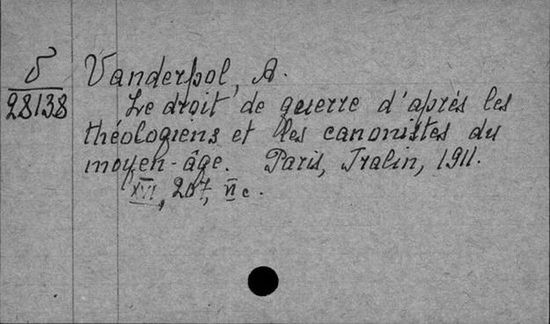 δ
28138
Vanderpol, A.
Le droit de guerre d'après les
théologiens et les canonistes du
moyen-âge. Paris, Tralin, 1911.
XVI, 207, II c.